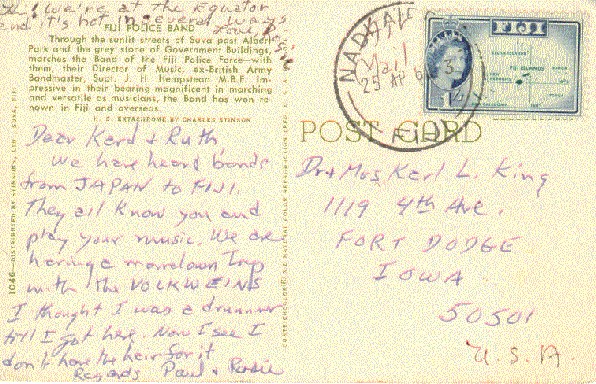 we're at the Equator
and it's hot in several ways
FIJI POLICE BAND
Through the sunlit streets of Suva past Albert
Park and the grey stone of Government Buildings,
marches the Band of the Fiji Police Force—with
them, their Director of Music, ex-British Army
Bandmaster, Supt. J. H. Hempstead M.B.E. Im-
pressive in their bearing magnificent in marching
and versatile as musicians, the Band has won re-
nown in Fiji and overseas.
F. S. EKTACHROME BY CHARLES STINSON
Dear Karl & Ruth,
We have heard bands
from JAPAN to FIJI.
They all know you and
play your music. We are
having a marvelous Trip
with the VOLKWEINS
I thought I was a drummer
till I got here. Now I see I
don't have the hair for it
Regards Paul &
1046—DISTRIBUTED BY STINSONS, LTD., SUVA, FIJI
NADI
Air
Mail
25 AP 6
FIJI
FIJI
1
POST CARD
Dr & Mrs Karl L. King
1119 4th Ave.
FORT DODGE
IOWA
50501
U.S.A.